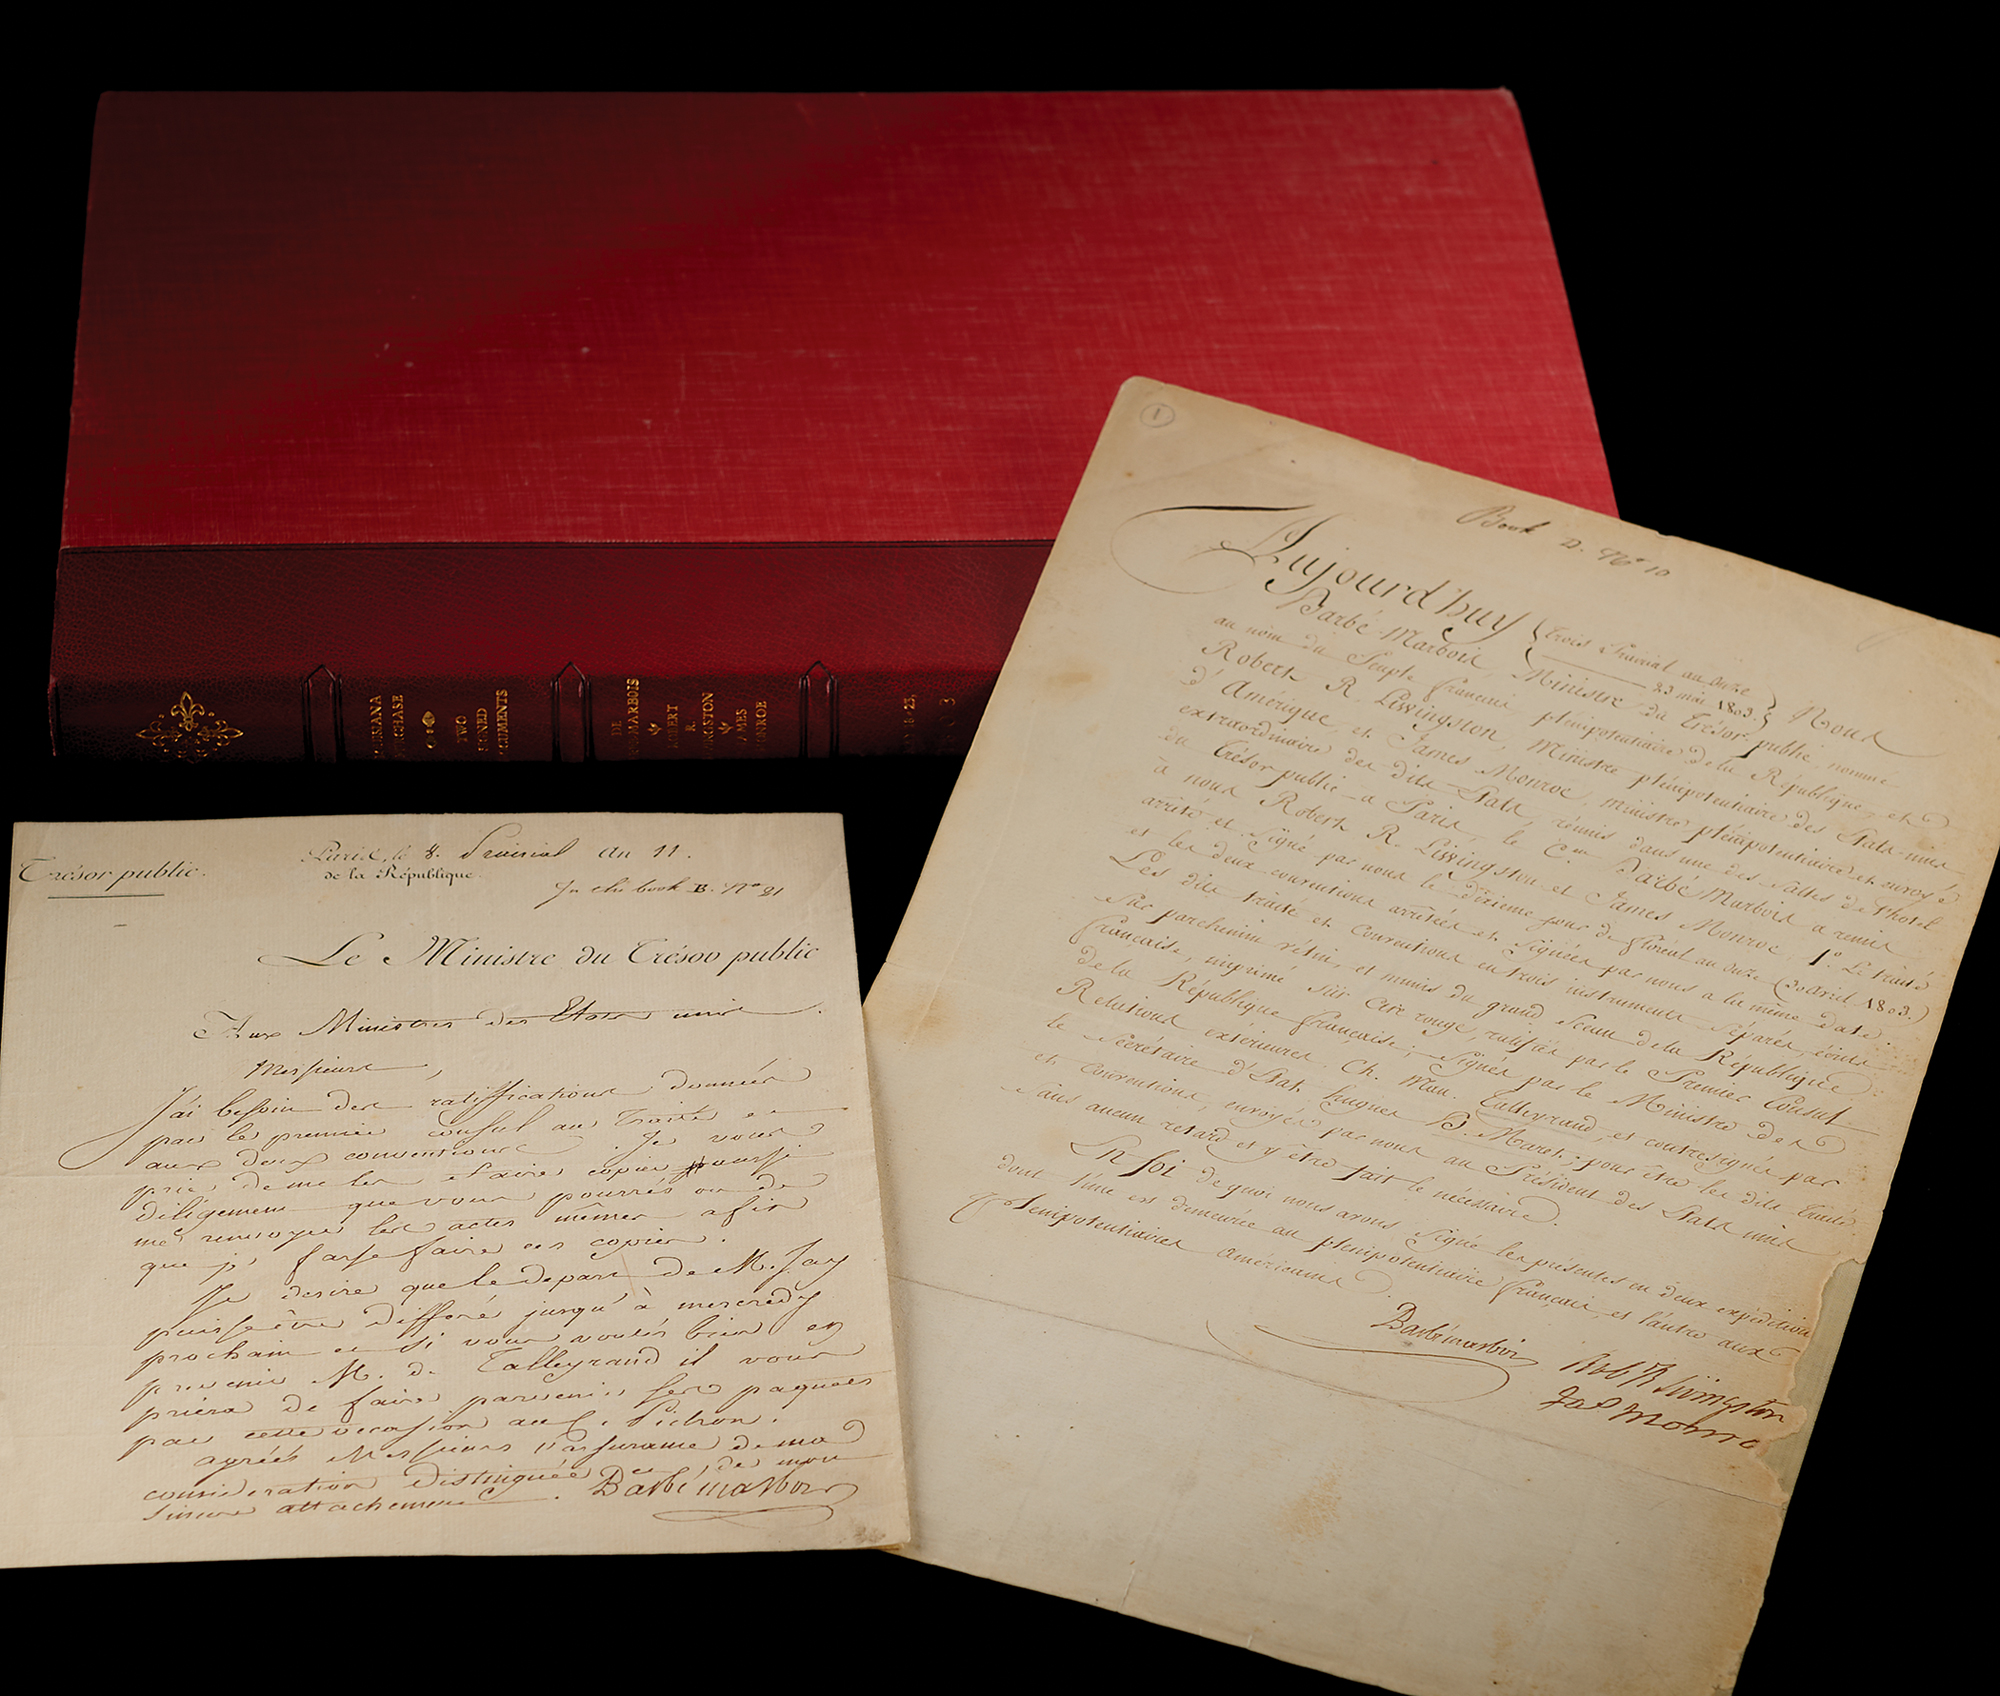 LOUISIANA
PURCHASE
TWO
SIGNED
DOCUMENTS
DE
BARBÉ-MARBOIS
ROBERT
R.
LIVINGSTON
JAMES
MONROE
Trésor public.
Paris, le 8. Prairial an 11.
de la République
In the book B. No 21
Le Ministre du Trésor public
Aux Ministres des Etats unis.
Messieurs,
J'ai besoin des ratiffications données
par le premier Consul au Traité et
aux deux conventions. Je vous
prie de me les faire copier aussi
diligemment que vous pourrés ou de
me renvoyer les actes mêmes afin
que j'y fasse faire ces copies.
Je desire que le depart de M. Jay
puisse être differé jusqu'à mercredy
prochain et si vous voulés bien en
prevenir M. de Talleyrand il vous
priera de faire parvenir ses paquets
par cette occasion au C. Pichon.
agréés Messieurs l'assurance de ma
consideration distinguée et de mon
sincere attachement. Barbé marbois
1
Book D. No 10
Aujourd'huy {trois Prairial an onze
23 mai 1803.} Nous
Barbé Marbois, Ministre du Trésor public, nommé
au nom du Peuple français plénipotentiaire de la République, et
Robert R. Livingston, Ministre plénipotentiaire des Etats-unis
d'Amérique, et James Monroe, ministre plénipotentiaire et envoyé
extraordinaire des dits Etats, réunis dans une des Salles de l'hotel
du Trésor public à Paris, le C.en Barbé Marbois a remis
à nous Robert R. Livingston et James Monroe, 1.o Le traité
arrêté et Signé par nous le dixieme jour de floréal an onze (30 avril 1803.)
et les deux conventions arrêtées et Signées par nous a la même date.
Les dits traité et Conventions en trois instruments Séparés, écrits
Sur parchemin vélin, et munis du grand Sceau de la République
française, imprimé sur Cire rouge, ratifiés par le Premier Consul
de la République française; Signés par le Ministre des
Relations extérieures Ch. Mau. Talleyrand, et contresignés par
le Secrétaire d'Etat hugues B. Maret; pour être les dits traité
et Conventions, envoyés par nous au Président des Etats unis
Sans aucun retard et y être fait le nécessaire.
En foi de quoi nous avons Signé les présentes en deux expéditions
dont l'une est demeurée au plenipotentiaire français, et l'autre aux
Plenipotentiaires américains.
Barbé marbois
Rob R Livingston
Jas Monroe